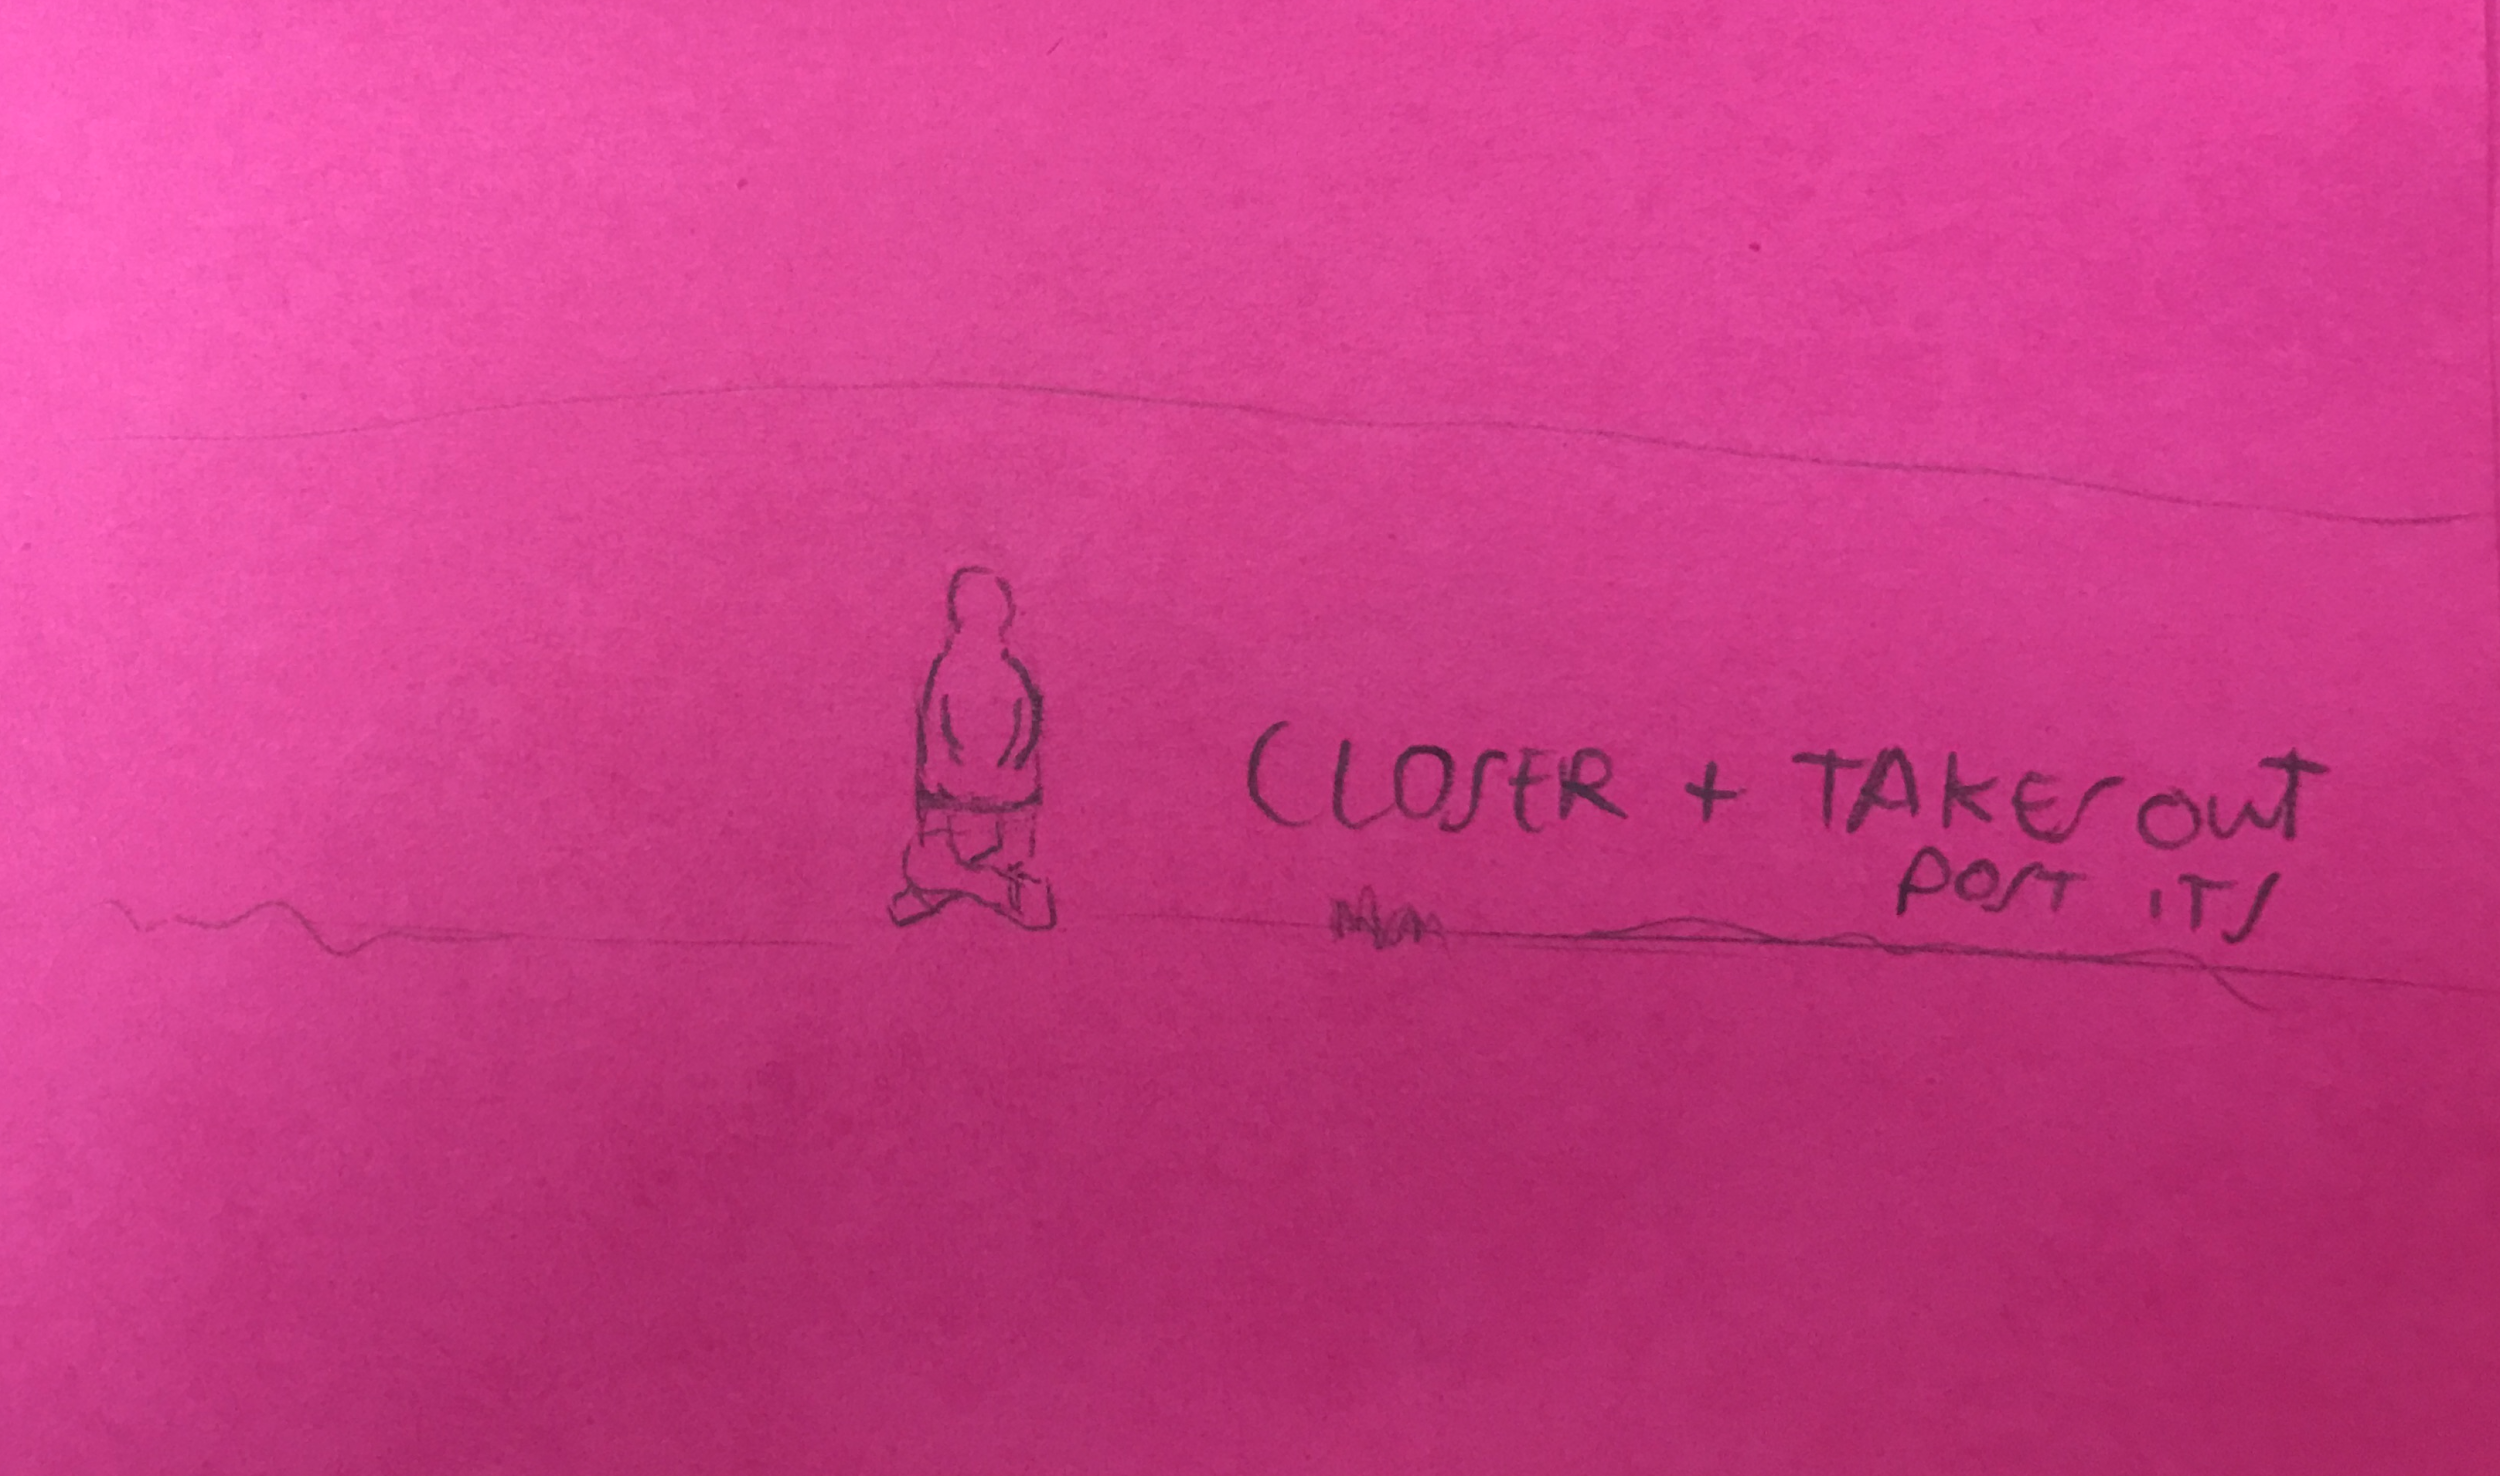 CLOSER + TAKES OUT
POST ITS